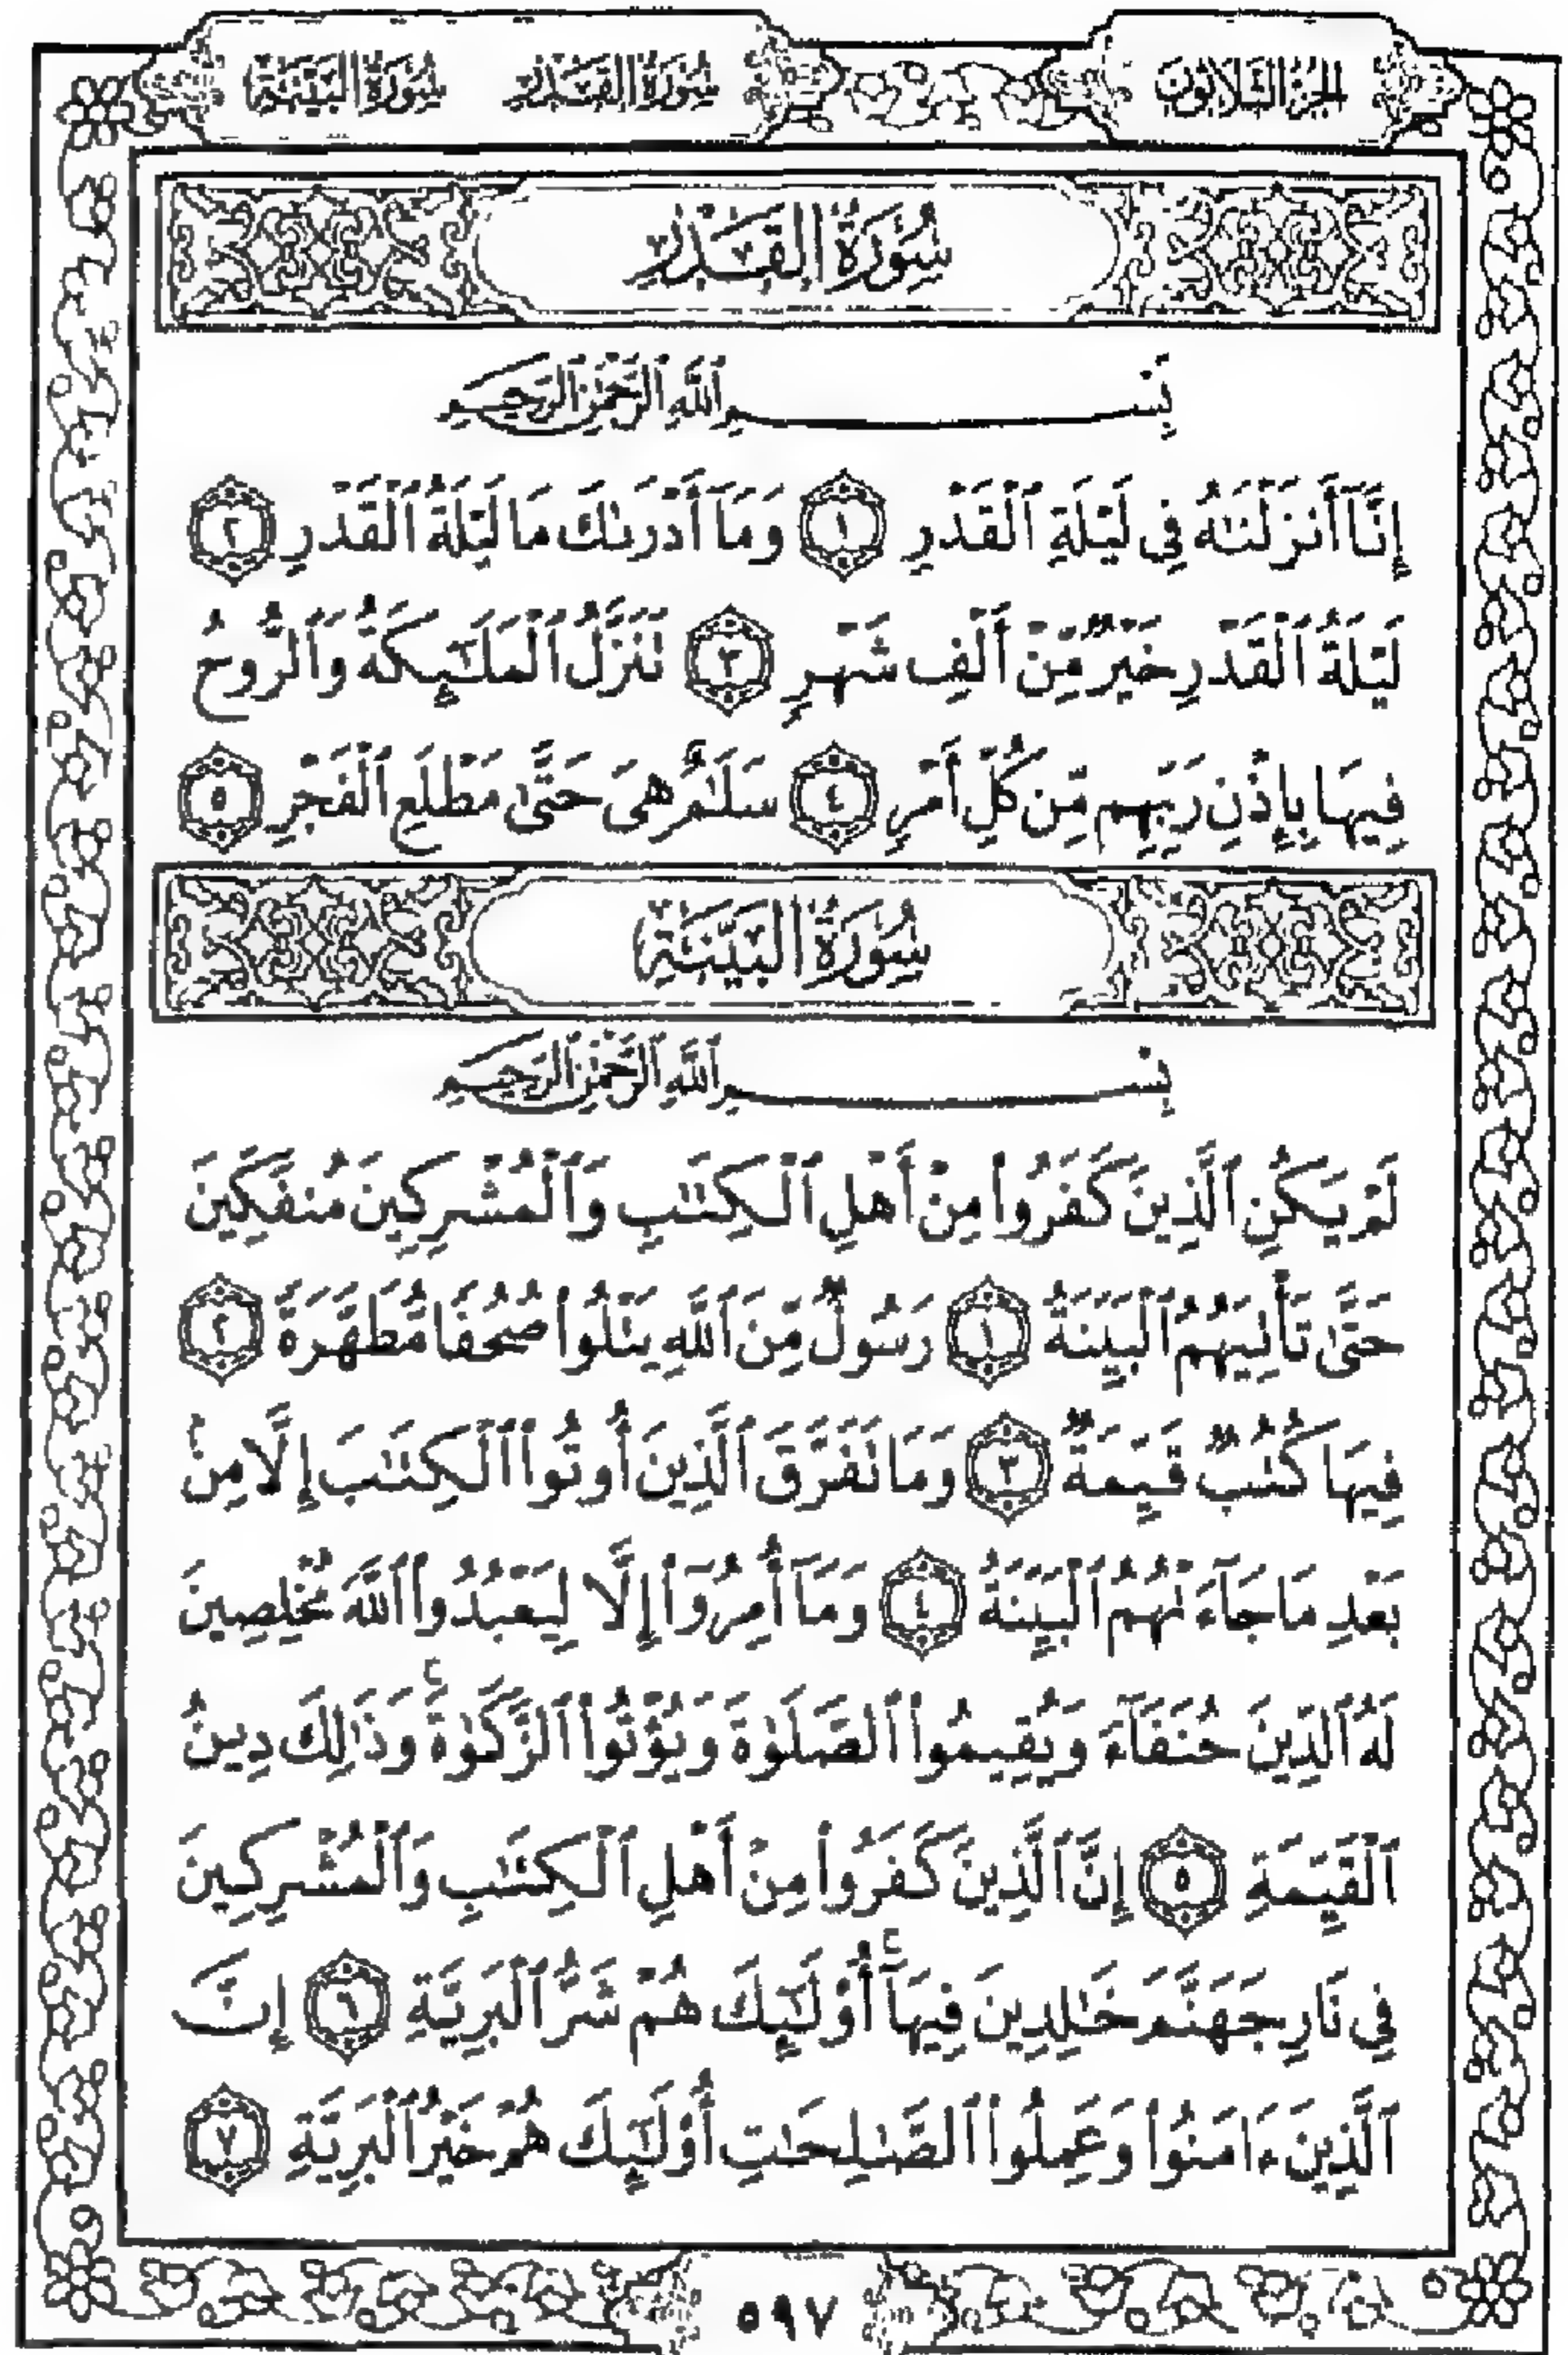 الجزء الثلاثون سورة القدر سورة البينة
سُورَةُ القَدْرِ
بِسْمِ ٱللَّهِ ٱلرَّحْمَٰنِ ٱلرَّحِيمِ
إِنَّآ أَنزَلْنَٰهُ فِى لَيْلَةِ ٱلْقَدْرِ ١ وَمَآ أَدْرَىٰكَ مَا لَيْلَةُ ٱلْقَدْرِ ٢
لَيْلَةُ ٱلْقَدْرِ خَيْرٌ مِّنْ أَلْفِ شَهْرٍ ٣ تَنَزَّلُ ٱلْمَلَٰٓئِكَةُ وَٱلرُّوحُ
فِيهَا بِإِذْنِ رَبِّهِم مِّن كُلِّ أَمْرٍ ٤ سَلَٰمٌ هِىَ حَتَّىٰ مَطْلَعِ ٱلْفَجْرِ ٥
سُورَةُ البَيِّنَةِ
بِسْمِ ٱللَّهِ ٱلرَّحْمَٰنِ ٱلرَّحِيمِ
لَمْ يَكُنِ ٱلَّذِينَ كَفَرُوا۟ مِنْ أَهْلِ ٱلْكِتَٰبِ وَٱلْمُشْرِكِينَ مُنفَكِّينَ
حَتَّىٰ تَأْتِيَهُمُ ٱلْبَيِّنَةُ ١ رَسُولٌ مِّنَ ٱللَّهِ يَتْلُوا۟ صُحُفًا مُّطَهَّرَةً ٢
فِيهَا كُتُبٌ قَيِّمَةٌ ٣ وَمَا تَفَرَّقَ ٱلَّذِينَ أُوتُوا۟ ٱلْكِتَٰبَ إِلَّا مِنۢ
بَعْدِ مَا جَآءَتْهُمُ ٱلْبَيِّنَةُ ٤ وَمَآ أُمِرُوٓا۟ إِلَّا لِيَعْبُدُوا۟ ٱللَّهَ مُخْلِصِينَ
لَهُ ٱلدِّينَ حُنَفَآءَ وَيُقِيمُوا۟ ٱلصَّلَوٰةَ وَيُؤْتُوا۟ ٱلزَّكَوٰةَ ۚ وَذَٰلِكَ دِينُ
ٱلْقَيِّمَةِ ٥ إِنَّ ٱلَّذِينَ كَفَرُوا۟ مِنْ أَهْلِ ٱلْكِتَٰبِ وَٱلْمُشْرِكِينَ
فِى نَارِ جَهَنَّمَ خَٰلِدِينَ فِيهَآ ۚ أُو۟لَٰٓئِكَ هُمْ شَرُّ ٱلْبَرِيَّةِ ٦ إِنَّ
ٱلَّذِينَ ءَامَنُوا۟ وَعَمِلُوا۟ ٱلصَّٰلِحَٰتِ أُو۟لَٰٓئِكَ هُمْ خَيْرُ ٱلْبَرِيَّةِ ٧
٥٩٧